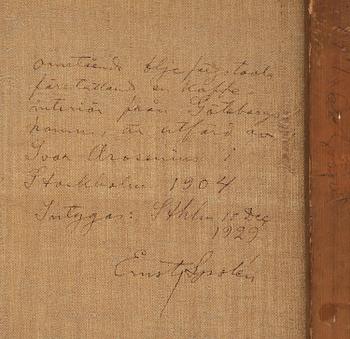 omstående oljefärgstavla
föreställande en kaffe
interiör från Göteborgs
hamn, är utförd av
Ivar Arosenius i
Stockholm 1904
Intygas: Sthlm 18 Dec
1929
Ernst Spolén